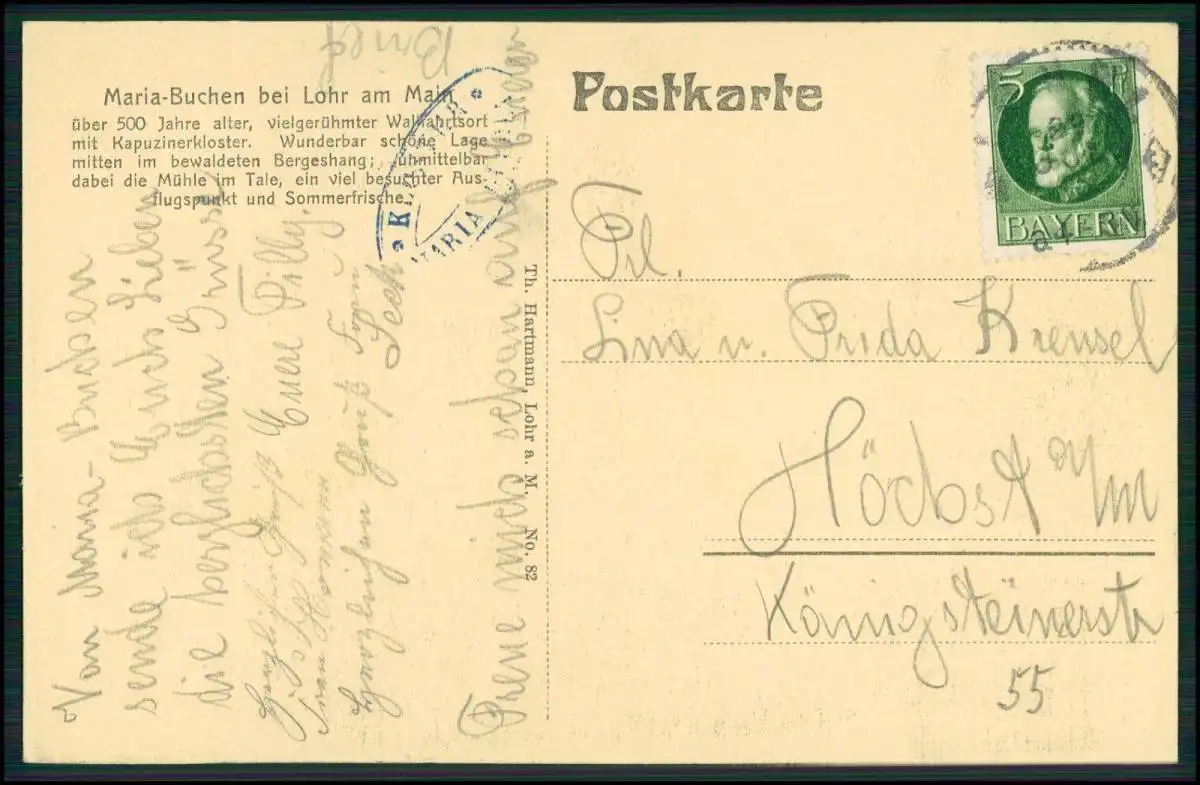 Maria-Buchen bei Lohr am Main
über 500 Jahre alter, vielgerühmter Wallfahrtsort
mit Kapuzinerkloster. Wunderbar schöne Lage
mitten im bewaldeten Bergeshang; unmittelbar
dabei die Mühle im Tale, ein viel besuchter Aus-
flugspunkt und Sommerfrische.
Postkarte
5
BAYERN
KLOSTER
MARIA
Th. Hartmann, Lohr a. M. No. 82
Frl.
Lina u. Frida Krensel
Höchst a/m
Königsteinerstr
55
Von Maria-Buchen
sende ich Euch Lieben
die herzlichsten Grüsse
Eure Filly.
Herzlichen Gruß
Herzlichen Gruß Frau
Freue mich schon auf
Brief